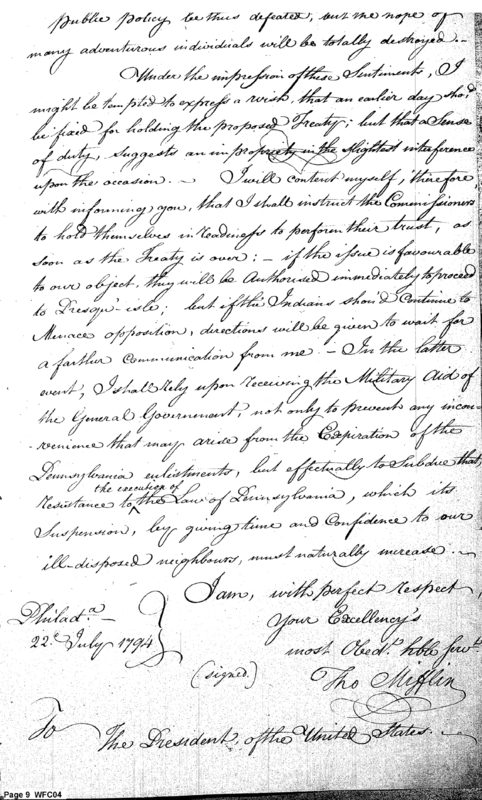 public policy be thus defeated, but the hope of
many adventurous individials will be totally destroyed. –
Under the impression of these Sentiments, I
might be tempted to express a wish, that an earlier day sho'd
be fixed for holding the proposed Treaty; but that a Sense
of duty, suggests an impropriety in the slightest interference
upon the occasion. – I will content myself, therefore,
with informing you, that I shall instruct the Commissioners
to hold themselves in readiness to perform their trust, as
soon as the Treaty is over: – if the issue is favourable
to our object, they will be Authorised immediately to proceed
to Presqu'-isle; but if the Indians shou'd Continue to
Menace opposition, directions will be given to wait for
a farther Communication from me – In the latter
event, I shall rely upon receiving the Military Aid of
the General Government, not only to prevent any incon-
-venience that may arise from the Expiration of the
Pennsylvania enlistments, but effectually to Subdue that
the execution of
resistance to ^ the Law of Pennsylvania, which its
Suspension, by giving time and Confidence to our
ill-disposed neighbours, must naturally increase. –
I am, with perfect respect,
Your Excellency's
most Obedt. hble servt.
Philada. –
22d. July 1794
(signed.) Tho Mifflin
To
The President, of the United States. –
Page 9 WFC04